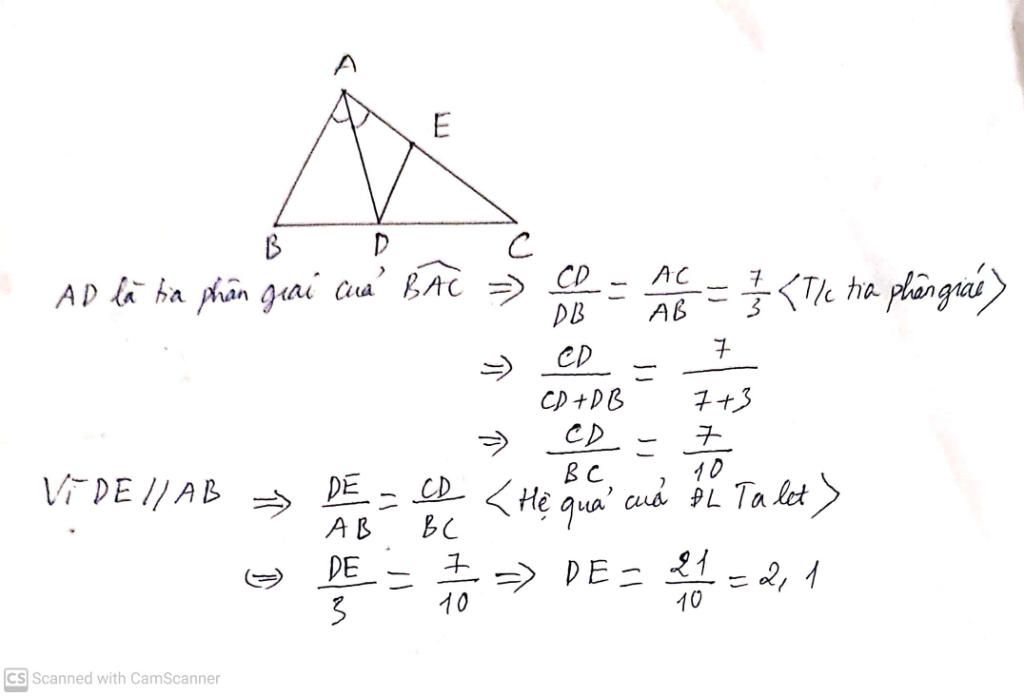 A
E
B D C
AD là tia phân giai của BAC ⇒ CD/DB = AC/AB = 7/3 <T/c tia phân giác>
⇒ CD/CD+DB = 7/7+3
⇒ CD/BC = 7/10
Vì DE//AB ⇒ DE/AB = CD/BC <Hệ quả của ĐL Ta let>
⇔ DE/3 = 7/10 ⇒ DE = 21/10 = 2,1
CS Scanned with CamScanner